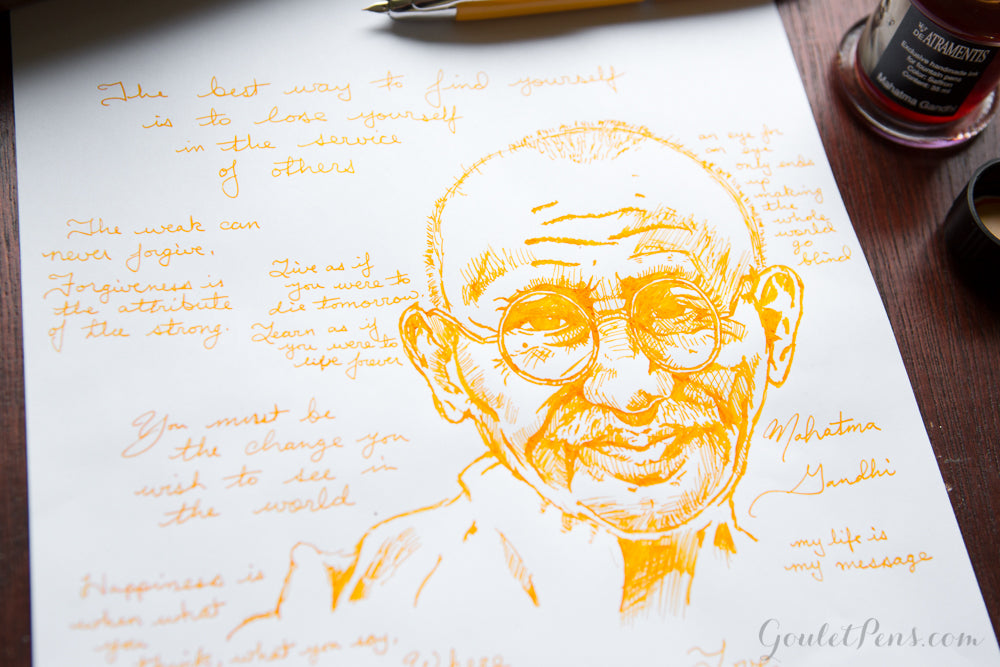 The best way to find yourself
is to lose yourself
in the service
of others
The weak can
never forgive.
Forgiveness is
the attribute
of the strong.
Live as if
you were to
die tomorrow.
Learn as if
you were to
live forever
an eye for
an eye
only ends
up
making
the
whole
world
go
blind
You must be
the change you
wish to see in
the world
Mahatma
Gandhi
my life is
my message
Happiness is
when what
you
think, what you say,
Where
DE ATRAMENTIS
Exclusive handmade ink
for fountain pens
Color: Saffron
Content: 35 ml
Mahatma Gandhi
GouletPens.com